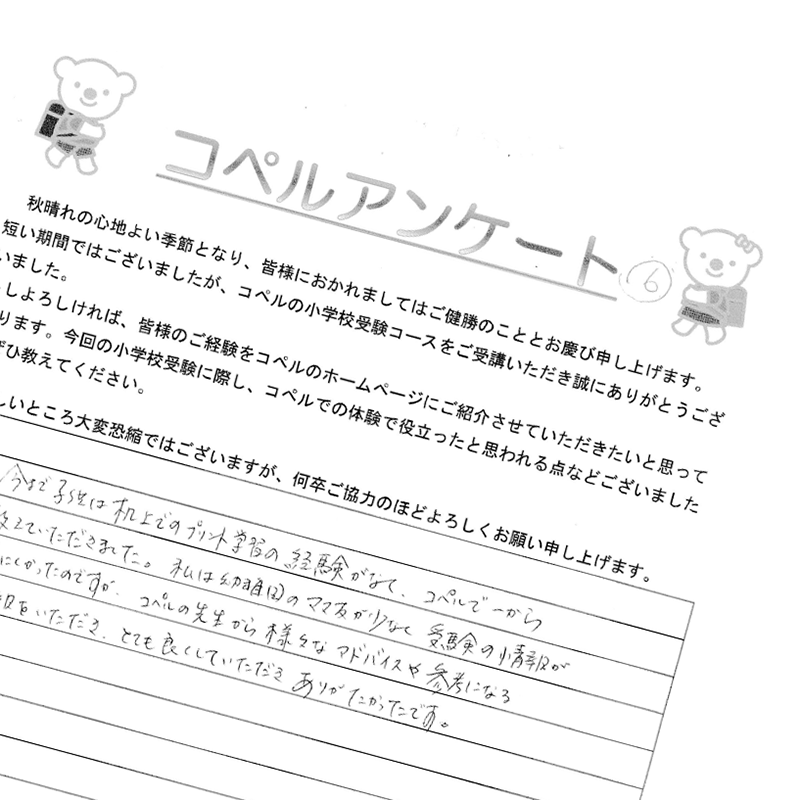 コペルアンケート
6
秋晴れの心地よい季節となり、皆様におかれましてはご健勝のこととお慶び申し上げます。
短い期間ではございましたが、コペルの小学校受験コースをご受講いただき誠にありがとうござ
いました。
しよろしければ、皆様のご経験をコペルのホームページにご紹介させていただきたいと思って
ります。今回の小学校受験に際し、コペルでの体験で役立ったと思われる点などございました
ぜひ教えてください。
しいところ大変恐縮ではございますが、何卒ご協力のほどよろしくお願い申し上げます。
今まで子供は机上でのプリント学習の経験がなく、コペルで一から
教えていただきました。私は幼稚園のママ友が少なく受験の情報が
にくかったのですが、コペルの先生から様々なアドバイスや参考になる
をいただき、とても良くしていただきありがたかったです。